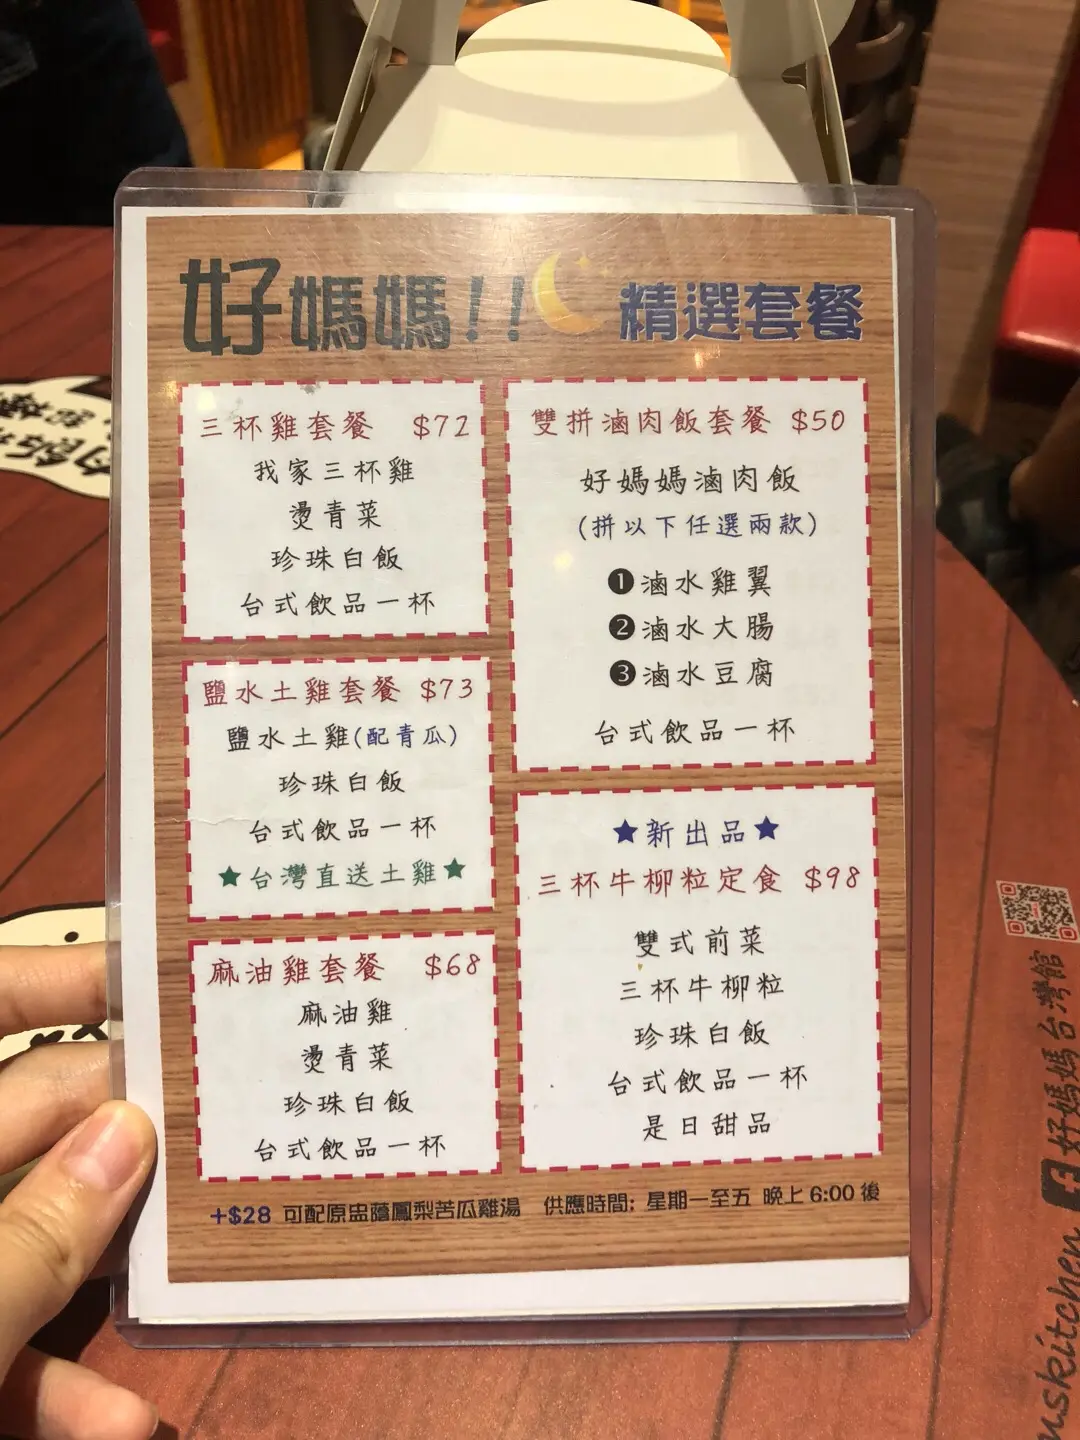 好媽媽!! 精選套餐
三杯雞套餐 $72
我家三杯雞
燙青菜
珍珠白飯
台式飲品一杯
鹽水土雞套餐 $73
鹽水土雞(配青瓜)
珍珠白飯
台式飲品一杯
★台灣直送土雞★
麻油雞套餐 $68
麻油雞
燙青菜
珍珠白飯
台式飲品一杯
雙拼滷肉飯套餐 $50
好媽媽滷肉飯
(拼以下任選兩款)
❶滷水雞翼
❷滷水大腸
❸滷水豆腐
台式飲品一杯
★新出品★
三杯牛柳粒定食 $98
雙式前菜
三杯牛柳粒
珍珠白飯
台式飲品一杯
是日甜品
+$28 可配原盅蔭鳳梨苦瓜雞湯 供應時間: 星期一至五 晚上 6:00 後
好媽媽台灣館
uskitchen